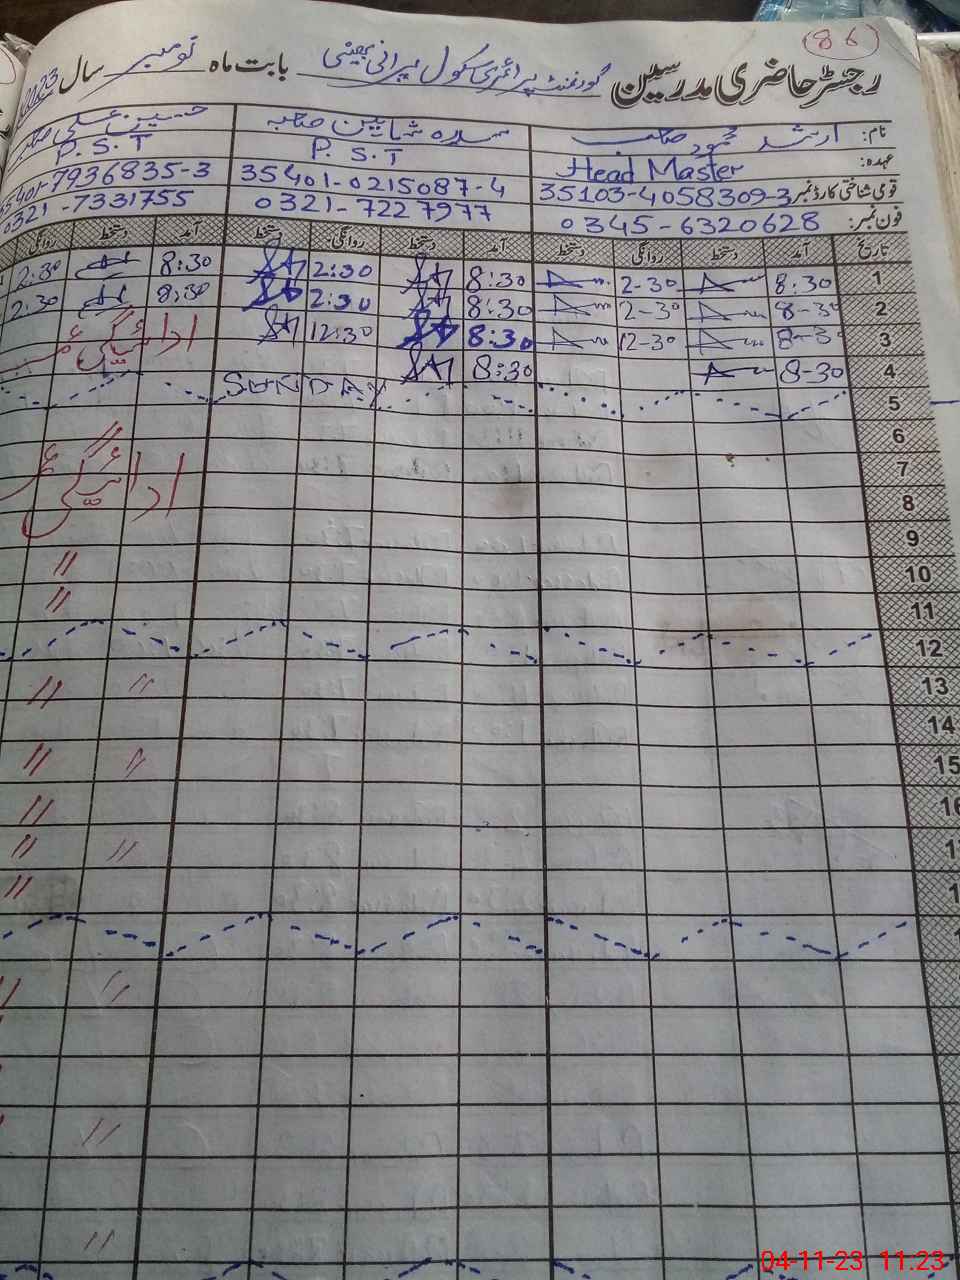 86
رجسٹر حاضری مدرسین گورنمنٹ پرائمری سکول پرانی بھینی بابت ماہ نومبر سال 2023
نام: ارشد محمود صاحب سدرہ شاہین صاحبہ حسین علی
عہدہ: Head Master P.S.T P.S.T
قومی شناختی کارڈ نمبر 35103-4058309-3 35401-0215087-4 35401-7936835-3
فون نمبر: 0345-6320628 0321-7227977 0321-7331755
تاریخ آمد دستخط روانگی دستخط آمد دستخط روانگی دستخط آمد دستخط روانگی
1 8:30 2-30 8:30 2:30 8:30 2:30
2 8-30 2-30 8:30 2:30 8:30 2:30
3 8-30 12-30 8:30 12:30 ادائیگی
4 8-30 8:30
5 SUNDAY
6
7 ادائیگی
8
9
10 "
11 "
12
13 " "
14
15 " "
16 "
" "
"
" "
"
"
04-11-23 11:23